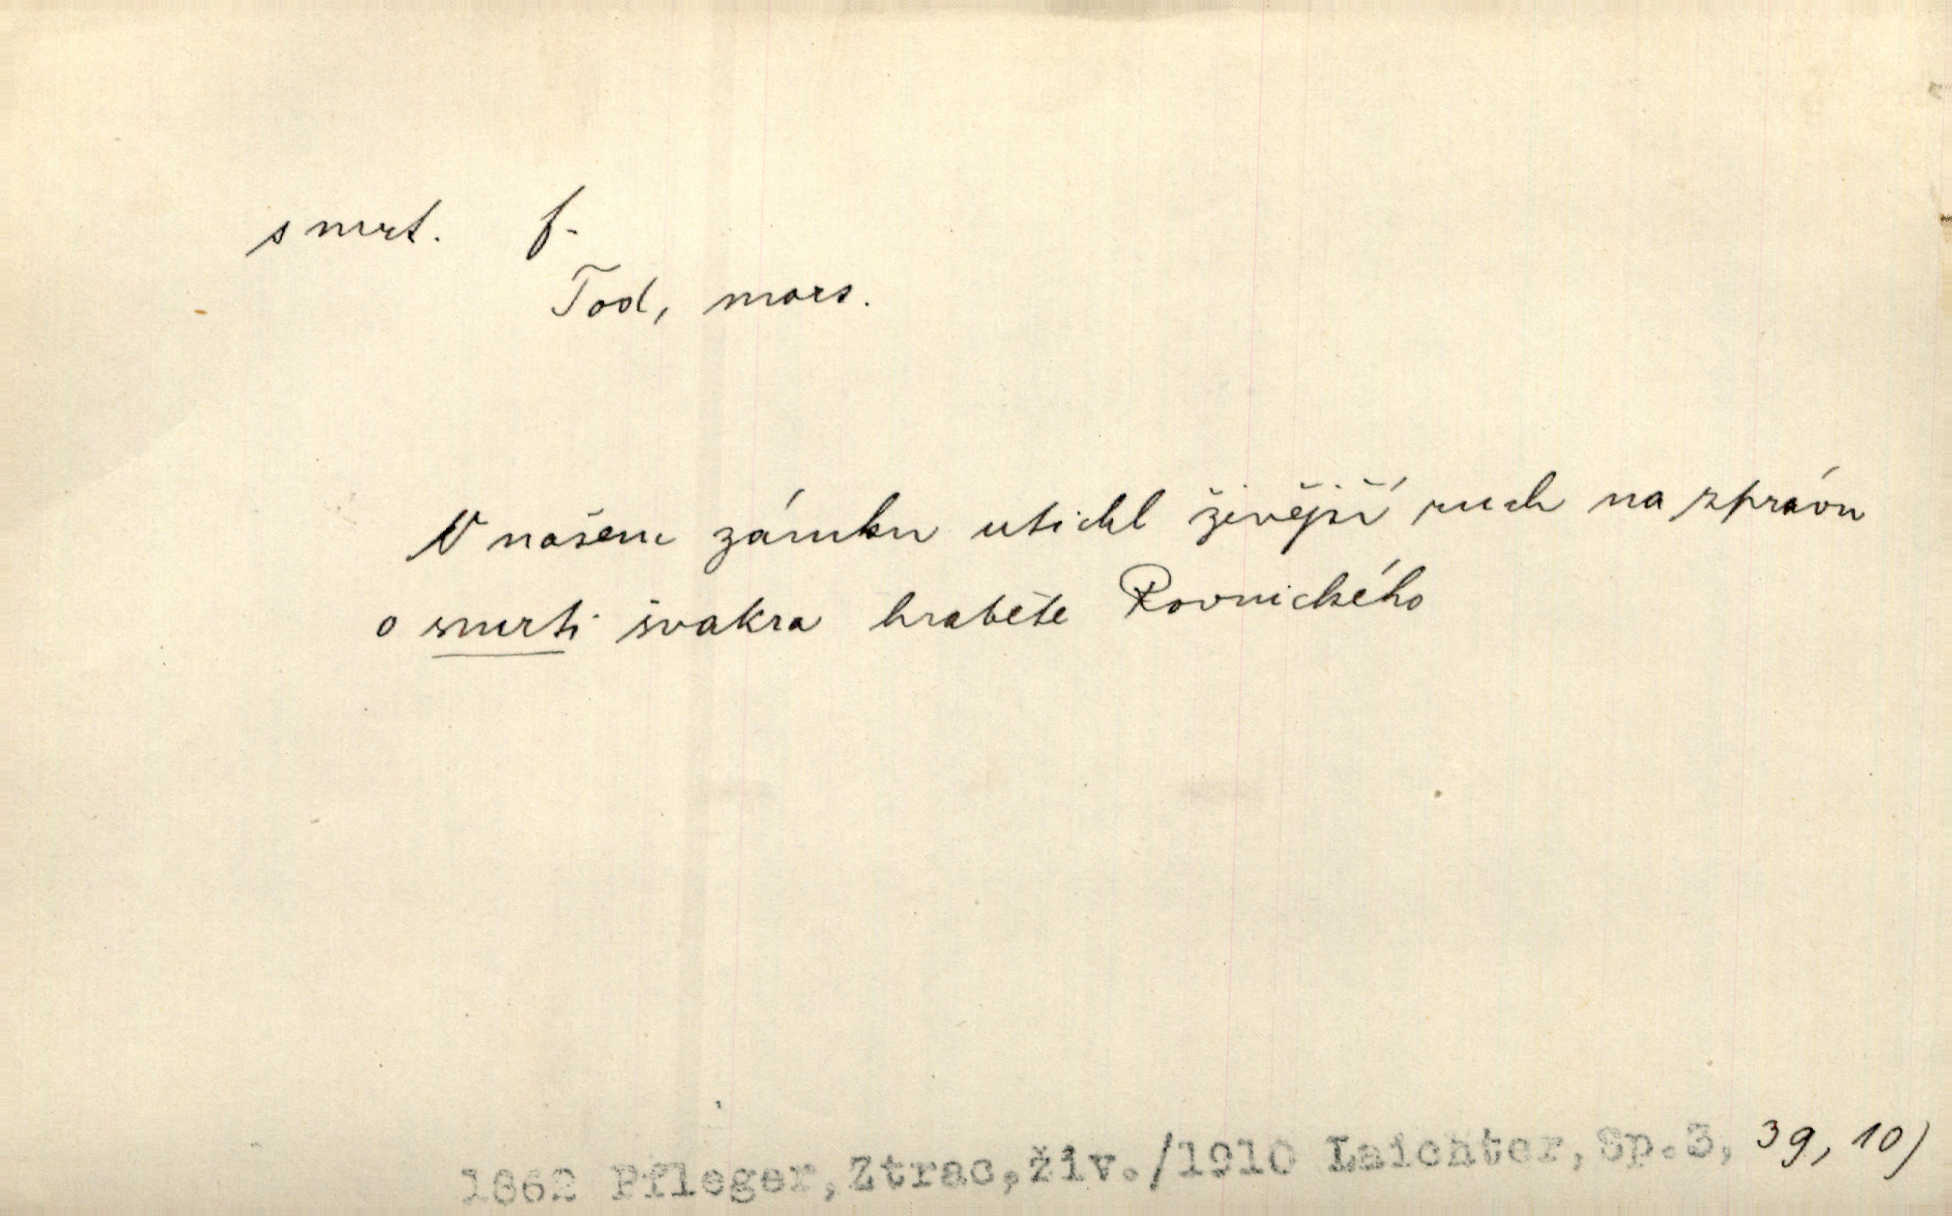 smrt. f.
Tod, mors.
V našem zámku utichl živější ruch na zprávu
o smrti švakra hraběte Rovnického
1862 Pfleger, Ztrac.živ./1910 Laichter, Sp.3, 39, 10)